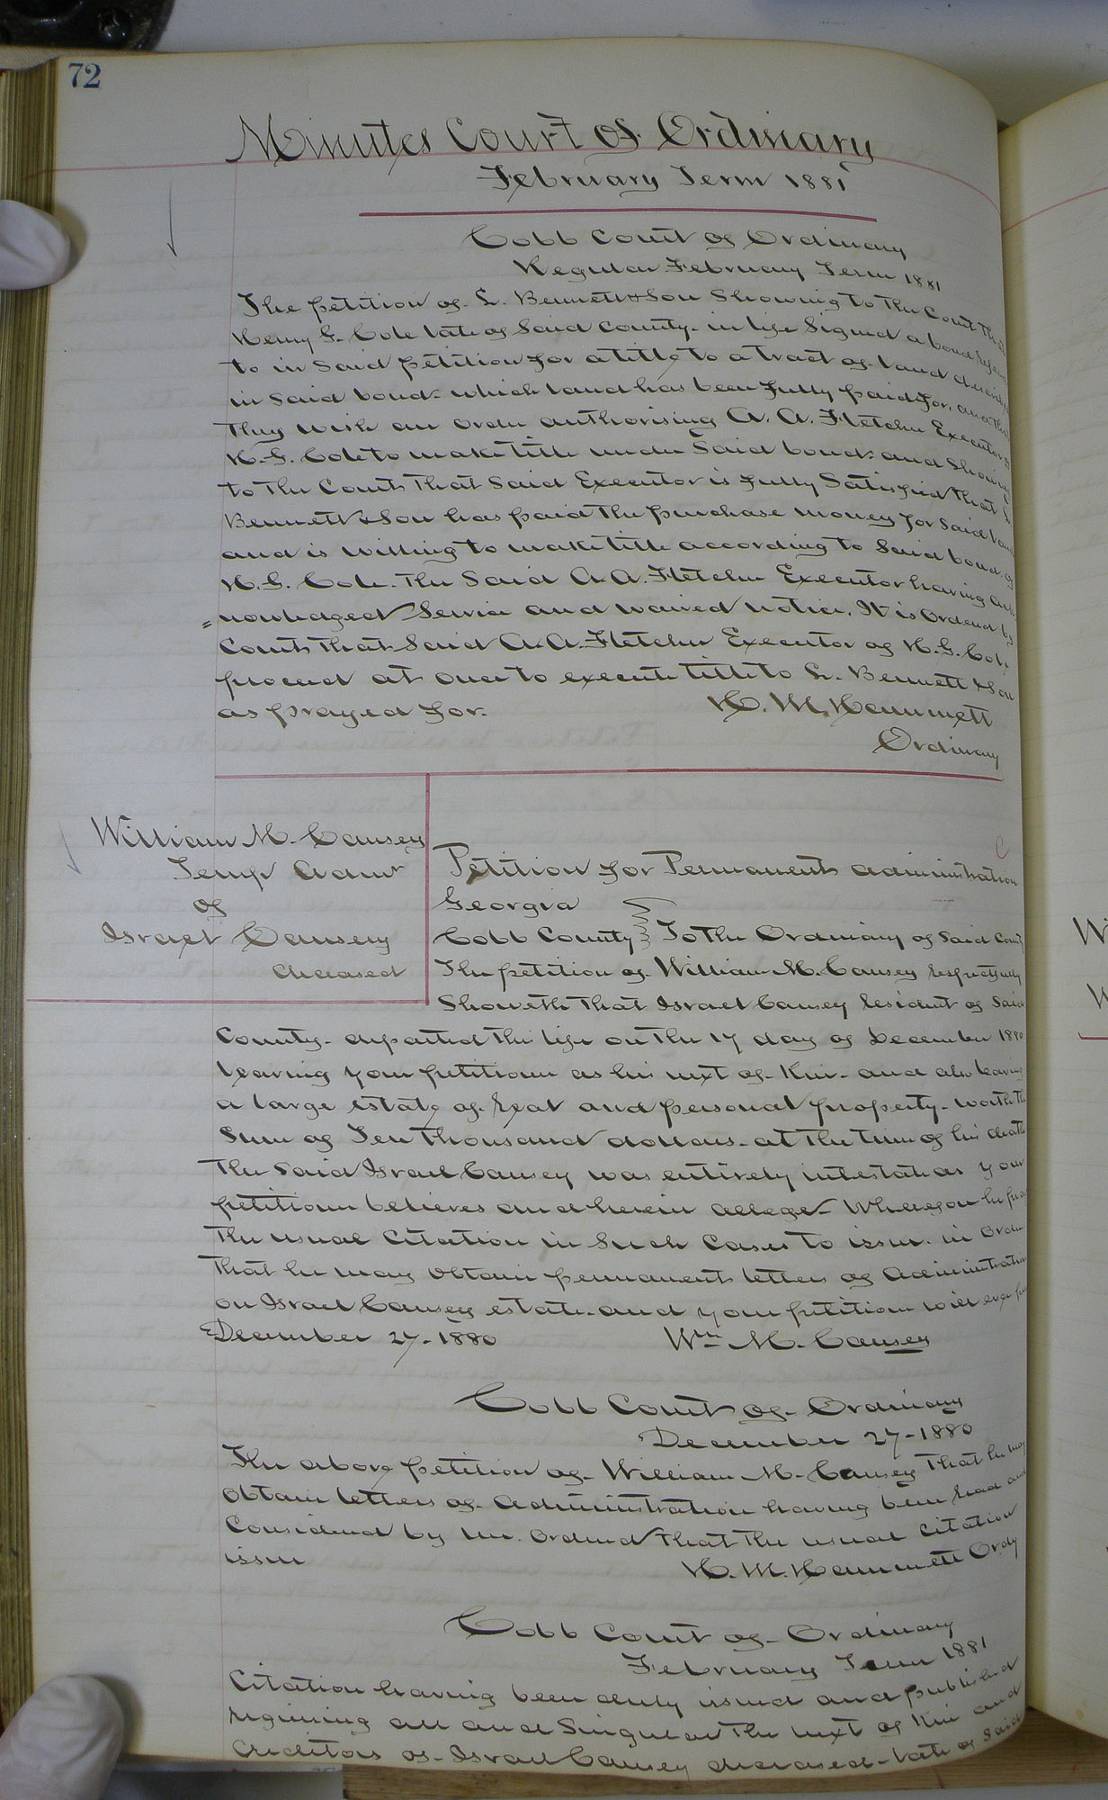 72
Minutes Court of Ordinary
February Term 1881
Cobb Court of Ordinary
Regular February Term 1881
The petition of L. Bennett & Son Showing to the Court that
Henry G. Cole late of Said County in life Signed a bond
to in Said petition for a title to a tract of land
in Said bond which land has been fully paid for, and that
They wish an order authorising A. A. Fletcher Executor of
H. G. Cole to make title under Said bond and Showing
to the Court That Said Executor is fully Satisfied that L.
Bennett & Son has paid the purchase money for Said land
and is willing to make title according to Said bond of
H. G. Cole. The Said A A. Fletcher Executor having ack=
=nowledged Service and waived notice. It is Ordered by
Court that Said A. A. Fletcher Executor of H. G. Cole
proceed at once to execute title to L. Bennett & Son
as prayed for. H. M. Hammett
Ordinary
William M. Causey
Temp Admr
of
Israel Causey
deceased
Petition for Permanent administration
Georgia
Cobb County } To the Ordinary of Said County
The petition of William M. Causey respectfully
Showeth that Israel Causey resident of Said
County departed this life on the 17 day of December 1880
leaving your petitioner as his next of Kin and also leaving
a large estate of real and personal property worth the
Sum of Ten thousand dollars at the time of his death
The said Israel Causey was entirely intestate as your
petitioner believes and herein alleges Whereupon he prays
the usual citation in Such Cases to issue in Order
that he may obtain permanent letters of Administration
on Israel Causey estate and your petitioner will ever pray
December 27 - 1880 Wm M. Causey
Cobb Court of Ordinary
December 27 - 1880
The above petition of William M. Causey that he may
obtain letters of administration having been read and
Considered by me. Ordered that the usual Citation
issue H. M. Hammett Ordy
Cobb Court of Ordinary
February Term 1881
Citation having been duly issued and published
requiring all and Singular the next of Kin and
Creditors of Israel Causey deceased late of Said